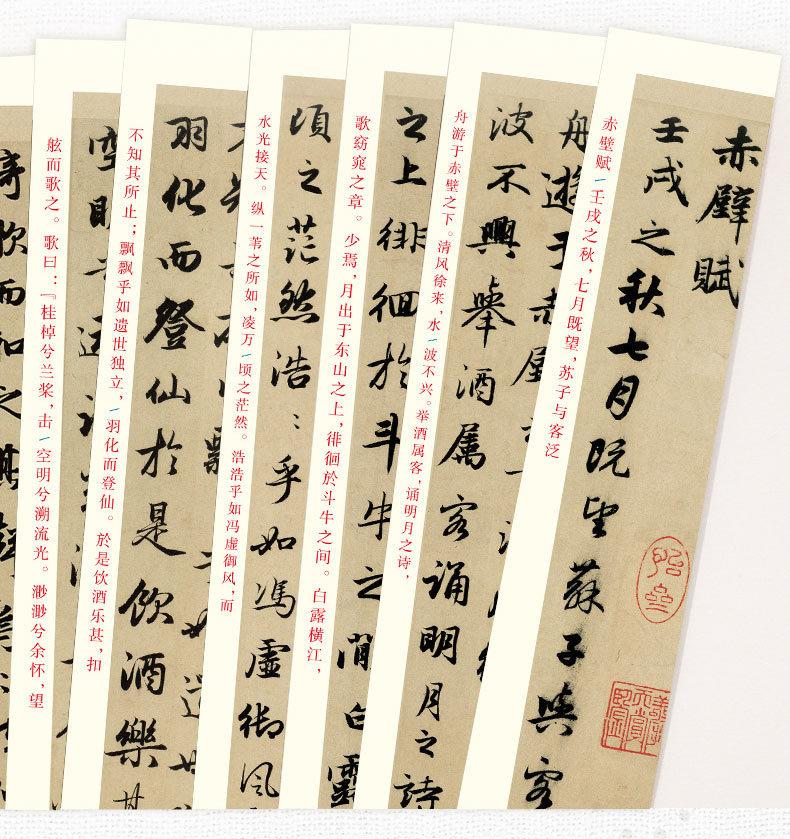 赤壁賦
壬戌之秋七月既望蘇子與客
赤壁赋 壬戌之秋，七月既望，苏子与客泛
舟遊于赤壁
波不興舉酒屬客誦明月之詩
舟游于赤壁之下。清风徐来，水波不兴。举酒属客，诵明月之诗，
之上徘徊於斗牛之間白露
歌窈窕之章。少焉，月出于东山之上，徘徊於斗牛之间。白露横江，
頃之茫然浩〻乎如馮虛御風
水光接天。纵一苇之所如，凌万顷之茫然。浩浩乎如冯虚御风，而
羽化而登仙於是飲酒樂甚
不知其所止；飘飘乎如遗世独立，羽化而登仙。於是饮酒乐甚，扣
空明
舷而歌之。歌曰：『桂棹兮兰桨，击空明兮溯流光。渺渺兮余怀，望
歌而和之其